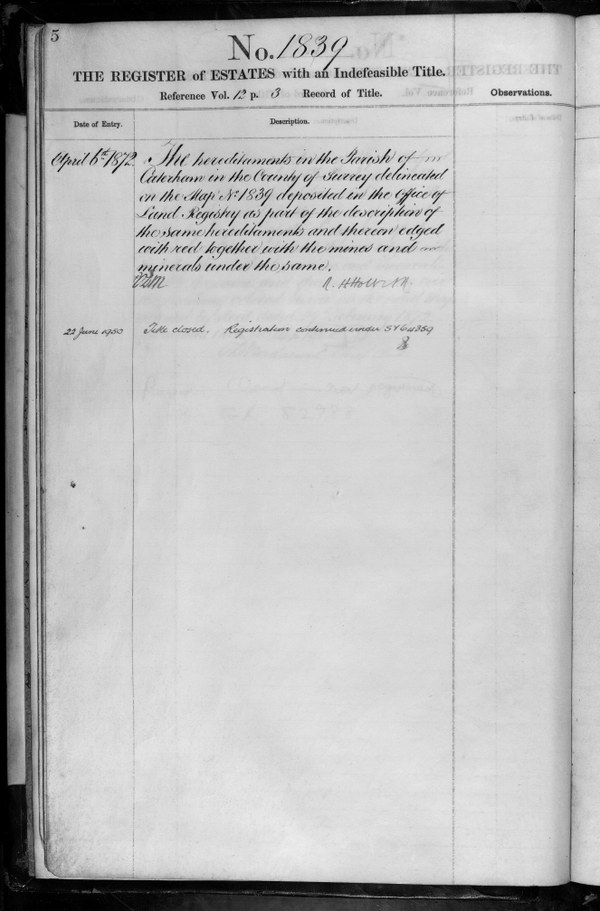 5
No. 1839
THE REGISTER of ESTATES with an Indefeasible Title.
Reference Vol. 12 p. 3 Record of Title.
Observations.
Date of Entry.
Description.
April 6th 1872
The hereditaments in the Parish of
Caterham in the County of Surrey delineated
on the Map No 1839 deposited in the Office of
Land Registry as part of the description of
the same hereditaments and thereon edged
with red together with the mines and
minerals under the same.
22 June 1950 Title closed. Registration continued under